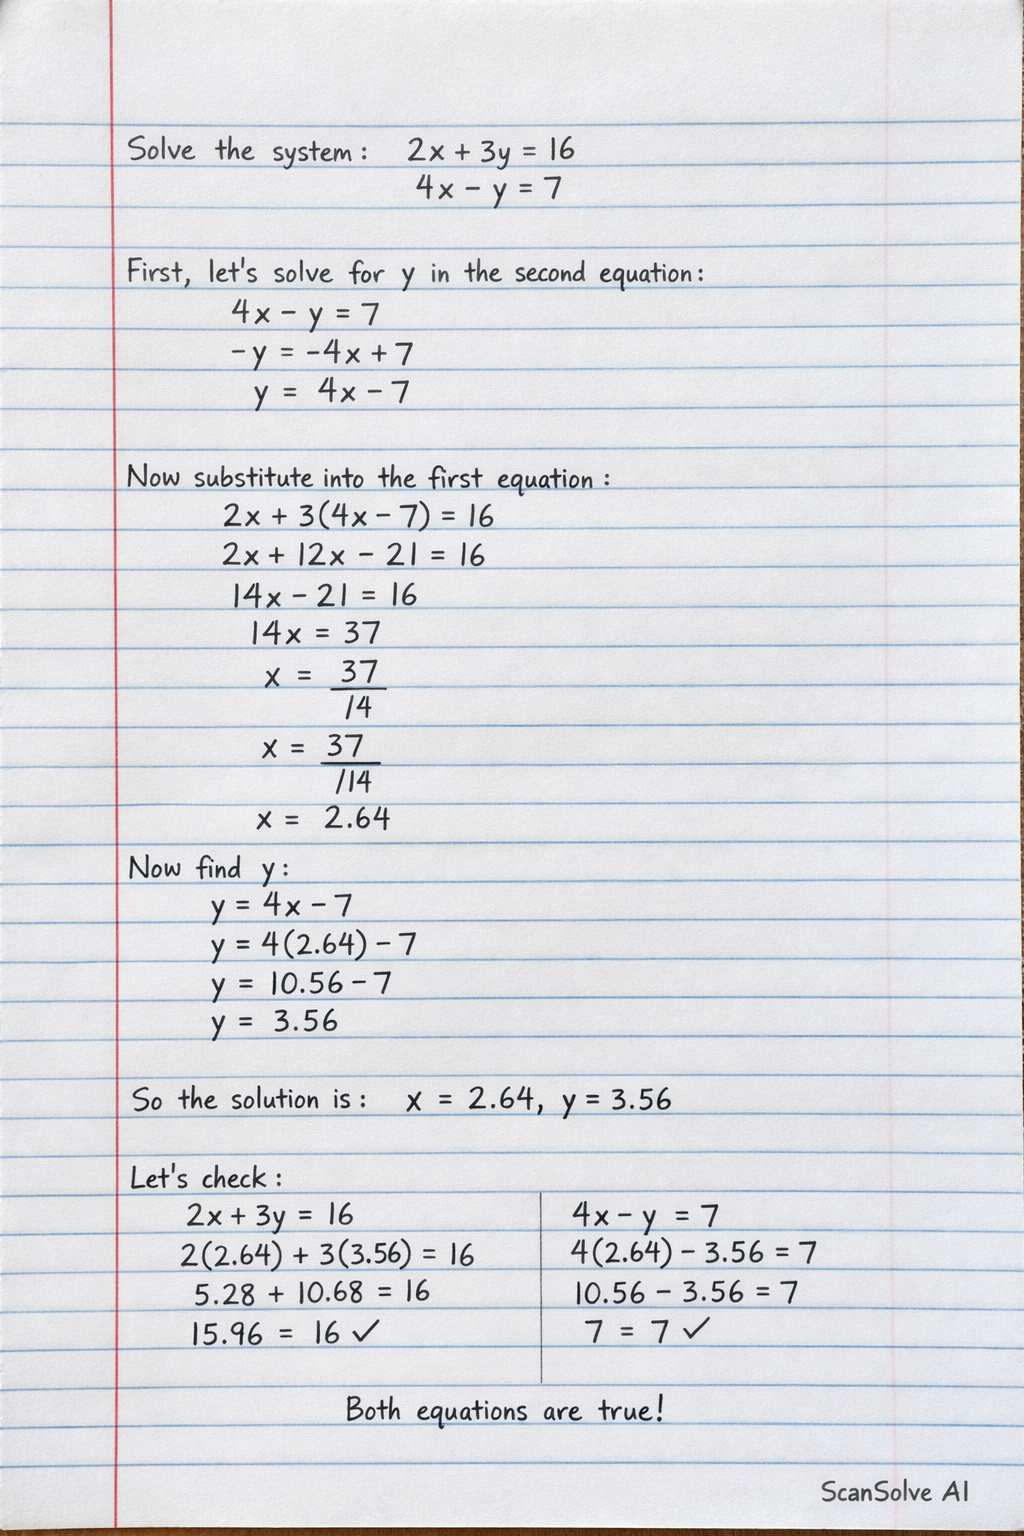 Solve the system: 2x + 3y = 16
4x - y = 7
First, let's solve for y in the second equation:
4x - y = 7
-y = -4x + 7
y = 4x - 7
Now substitute into the first equation:
2x + 3(4x - 7) = 16
2x + 12x - 21 = 16
14x - 21 = 16
14x = 37
x = 37
/14
x = 37
/14
x = 2.64
Now find y:
y = 4x - 7
y = 4(2.64) - 7
y = 10.56 - 7
y = 3.56
So the solution is: x = 2.64, y = 3.56
Let's check:
2x + 3y = 16
2(2.64) + 3(3.56) = 16
5.28 + 10.68 = 16
15.96 = 16 ✓
4x - y = 7
4(2.64) - 3.56 = 7
10.56 - 3.56 = 7
7 = 7 ✓
Both equations are true!
ScanSolve AI